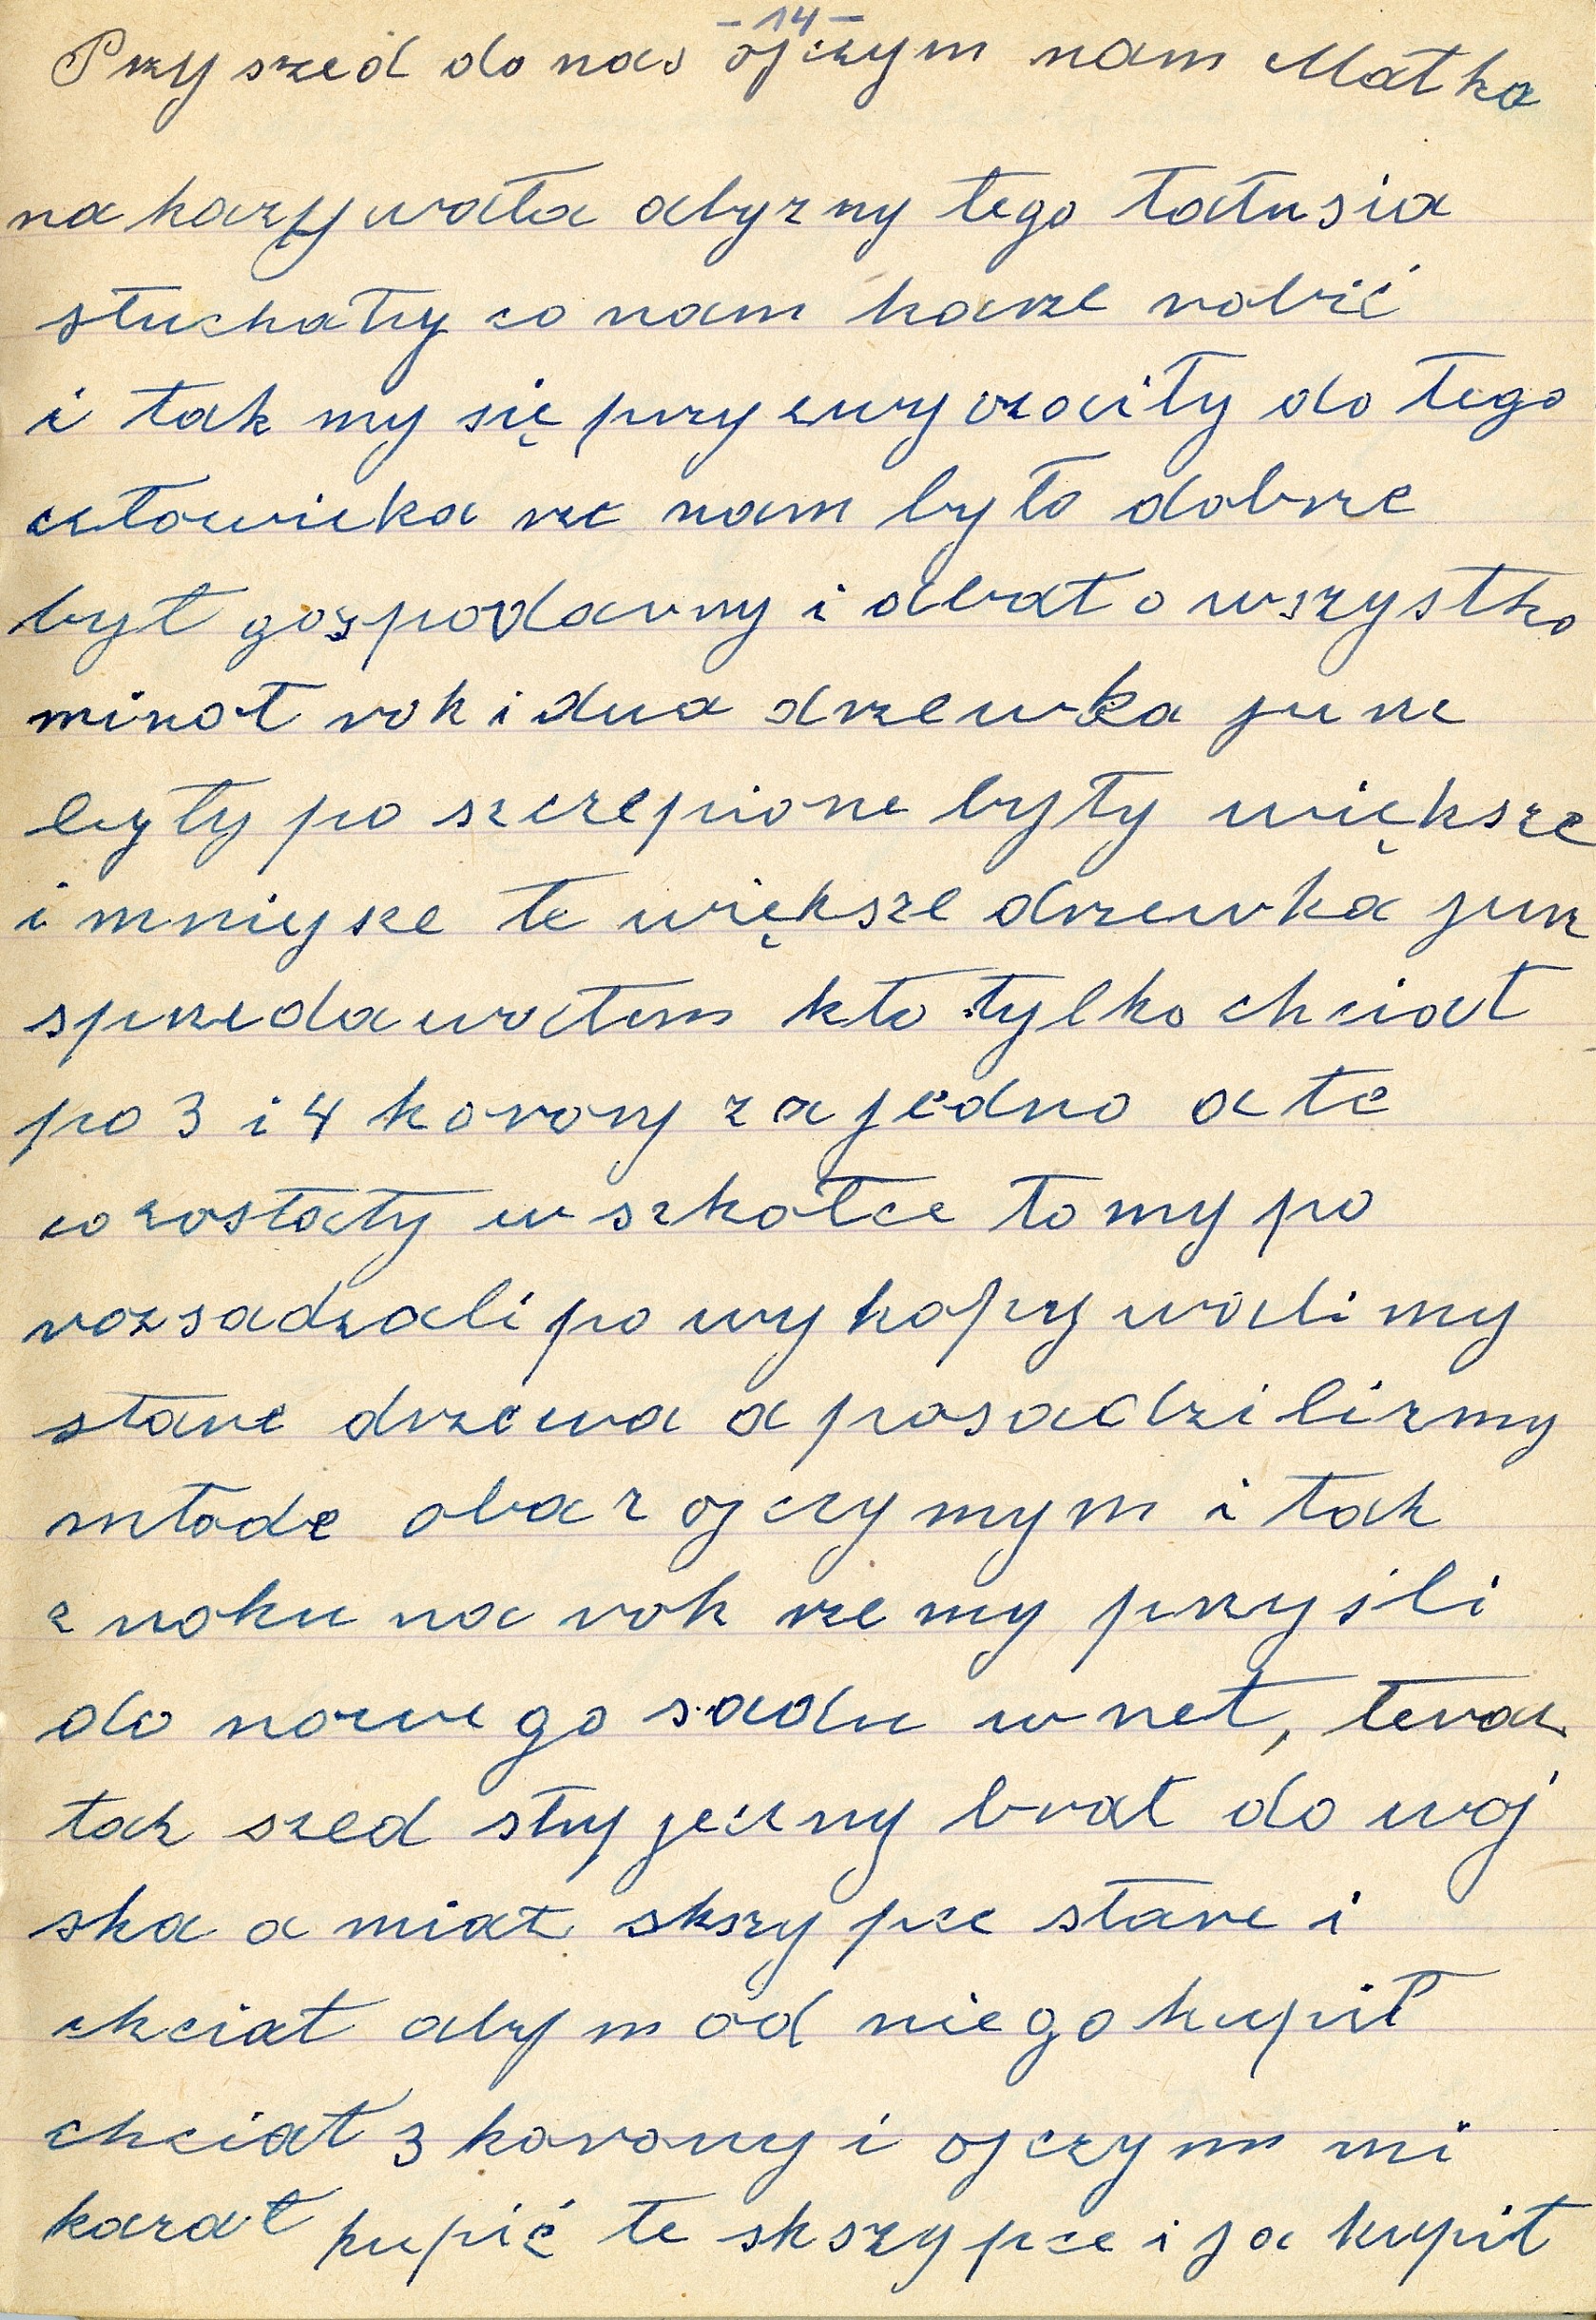 - 14 -
Przyszed do nas ojczym nam Matka
nakazywała abyzmy tego tatusia
słuchały co nam karze robić
i tak my się przyzwyczaiły do tego
człowieka rze nam było dobrze
był gospodarny i dbał o wszystko
minoł rok i dwa drzewka jurz
były poszczepione były większe
i mniejsze te większe drzewka jurz
sprzedawałem kto tylko chciał
po 3 i 4 korony za jedno a te
co zostały w szkółce to my po
rozsadzali powykopywali my
stare drzewa a posadzilizmy
młode oba z ojczymym i tak
z roku na rok rze my przyśli
do nowego sadu wnet, teraz
tak szed stryjeczny brat do woj
ska a miał skszypce stare i
chciał abym od niego kupił
chciał 3 korony i ojczym mi
kazał kupić te skszypce i ja kupił